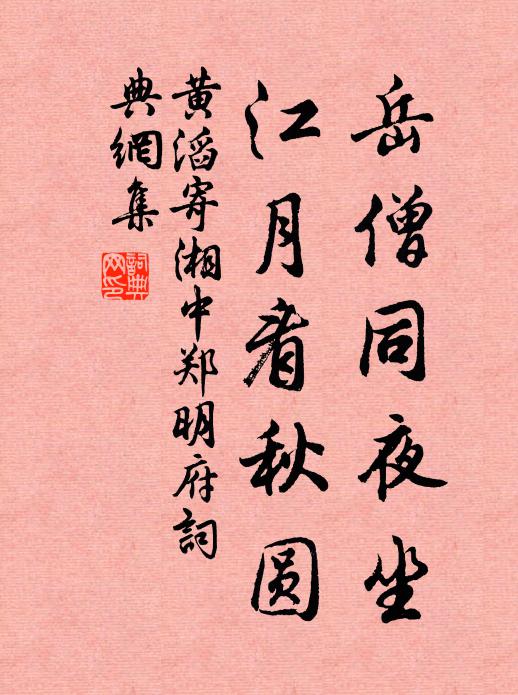 岳僧同夜坐
江月看秋圆
黄滔寄湘中郑明府詞
典網集
詞典网印